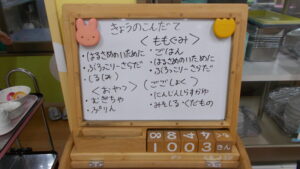 きょうのこんだて
＜ももぐみ＞
・はるさめのいために
・ぶろっこりーさらだ
・しる(み)
・ごはん
・はるさめのいために
・ぶろっこりーさらだ
＜おやつ＞
・むぎちゃ
・ぷりん
(ごごしょく)
・にんじんしらすかゆ
・みそしる・くだもの
1003 きん